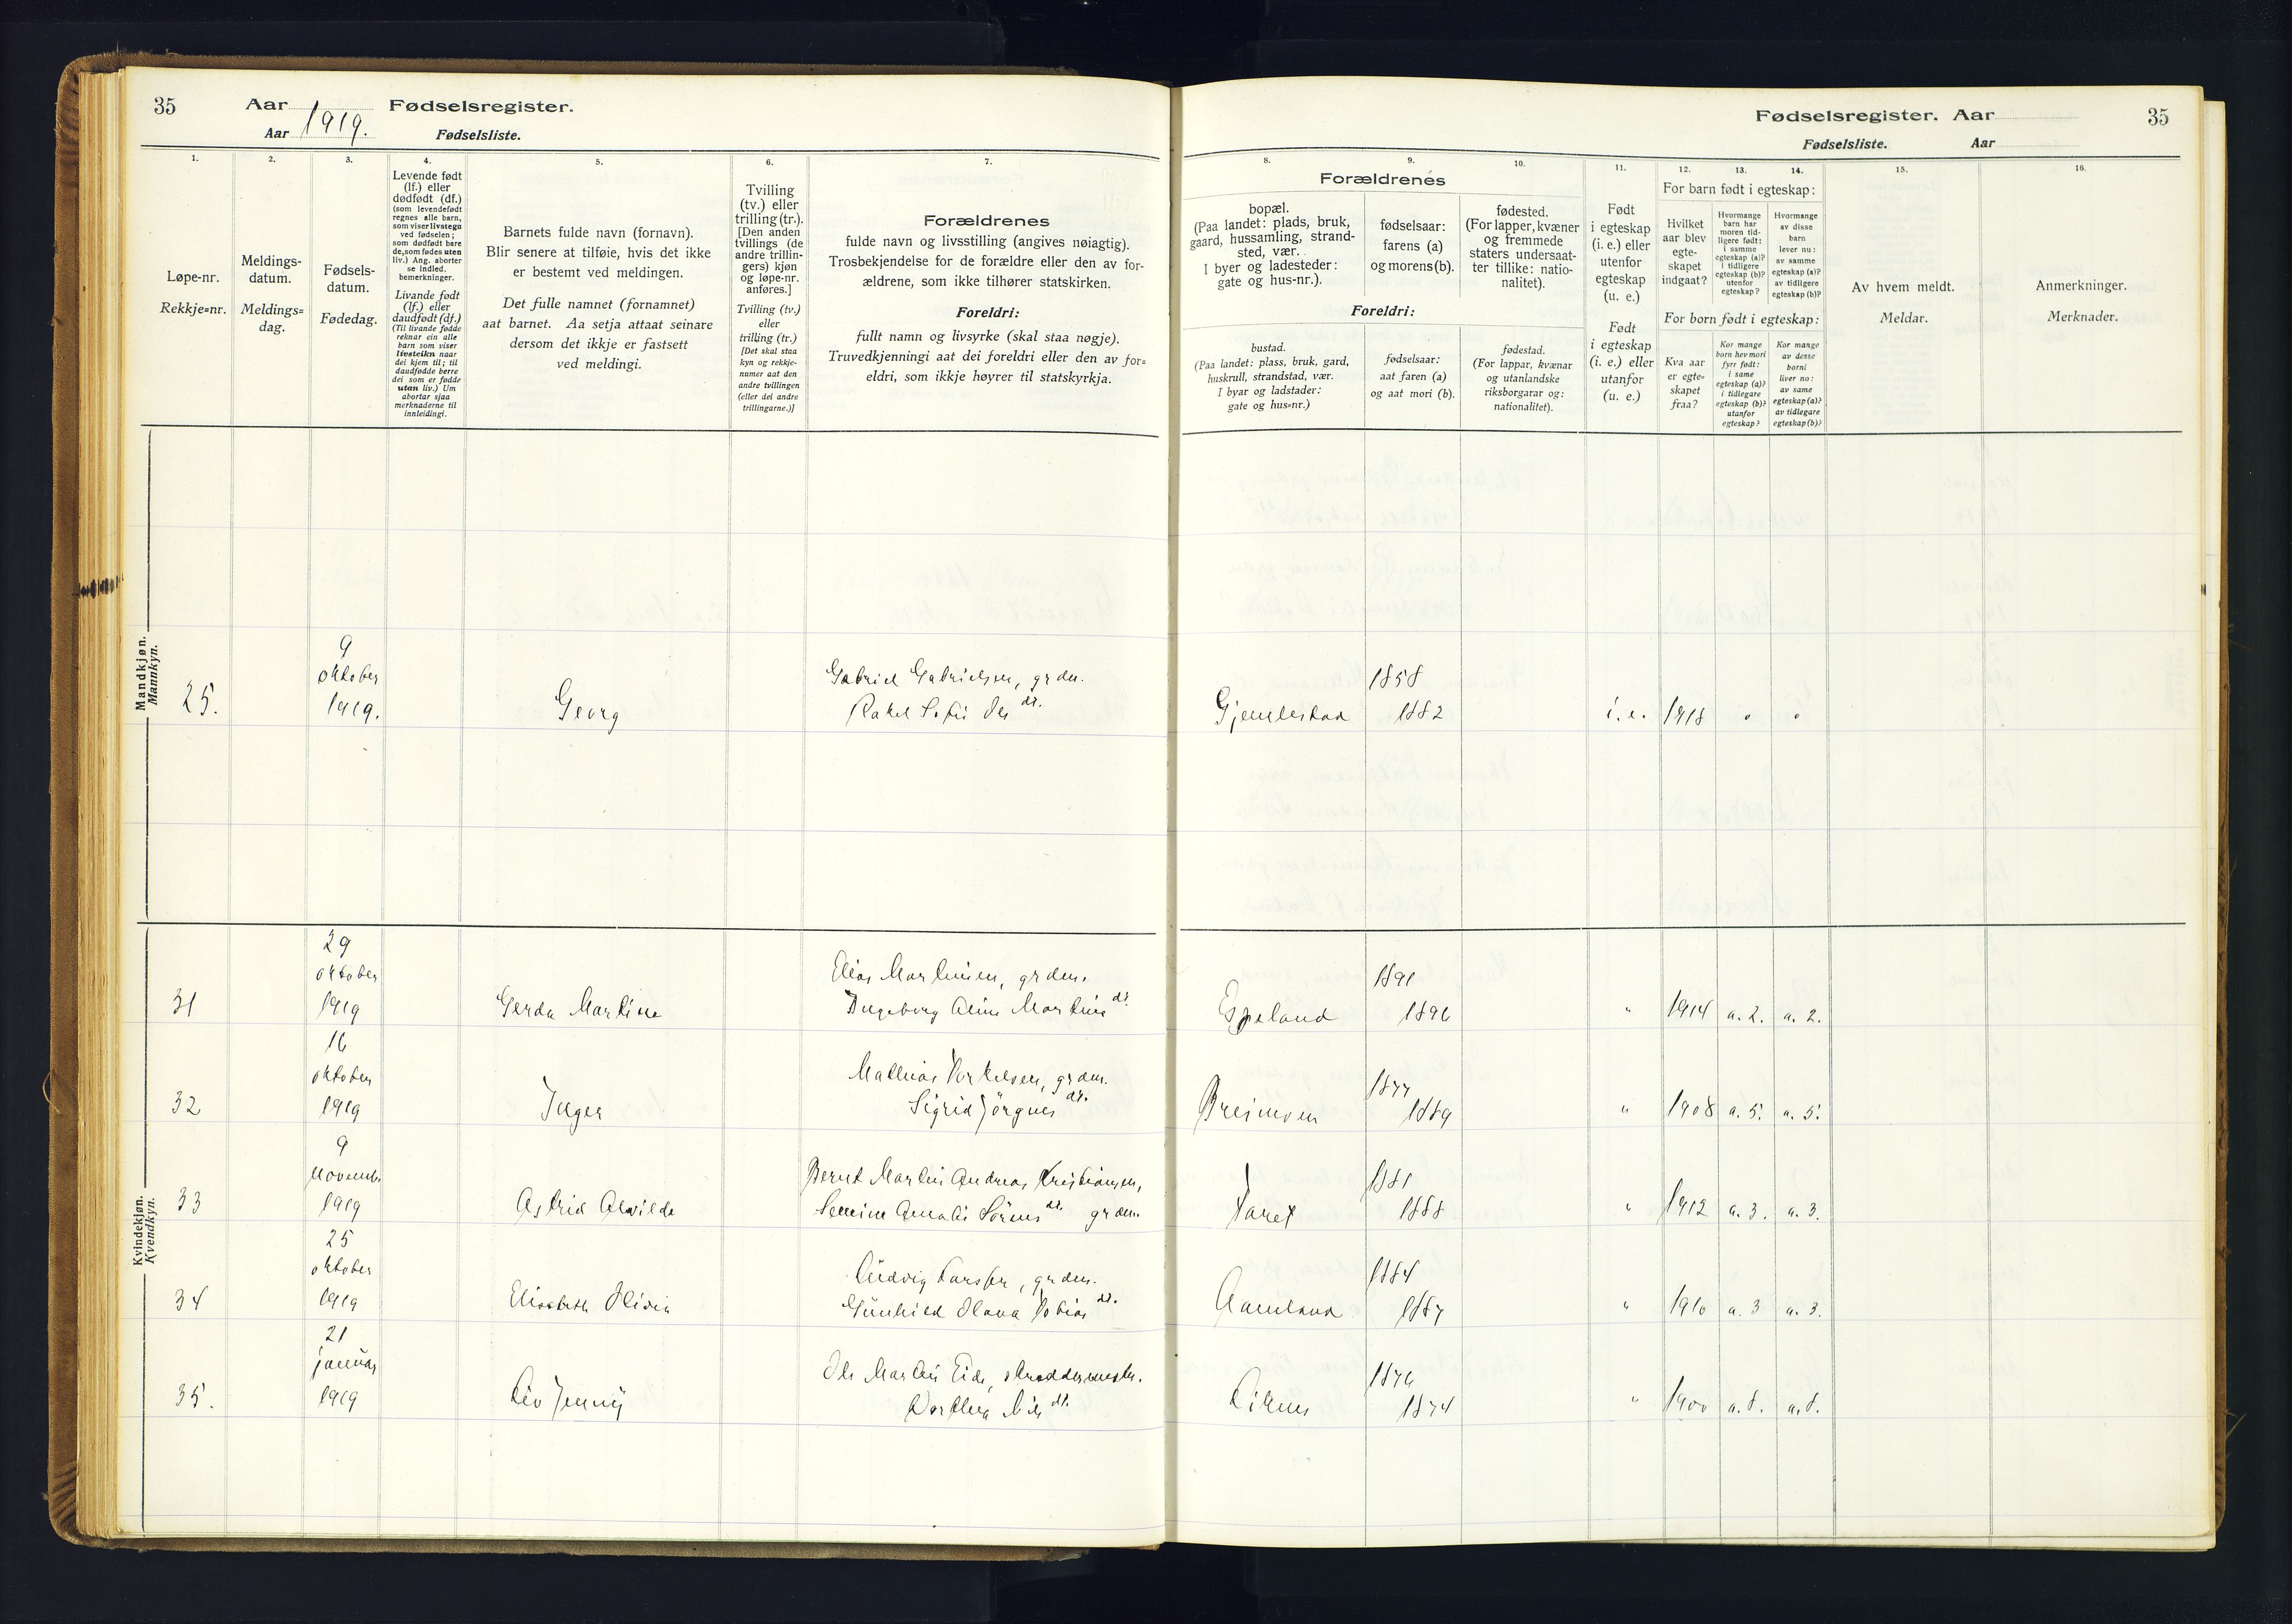 35
Aar 1919. Fødselsregister.
Aar Fødselsliste.
1.
Løpe-nr.
Rekkje=nr.
2.
Meldings-
datum.
Meldings=
dag.
3.
Fødsels-
datum.
Fødedag.
4.
Levende født
(lf.) eller
dødfødt (df.)
(som levendefødt
regnes alle barn,
som viser livstegn
ved fødselen;
som dødfødt bare
de, som fødes uten
liv.) Ang. aborter
se indled.
bemerkninger.
Livande født
(lf.) eller
daudfødt (df.)
(Til livande fødde
reknar ein alle
barn som viser
livsteikn naar
dei kjem til; til
daudfødde berre
dei som er fødde
utan liv.) Um
abortar sjaa
merknaderne til
innleidingi.
5.
Barnets fulde navn (fornavn).
Blir senere at tilføie, hvis det ikke
er bestemt ved meldingen.
Det fulle namnet (fornamnet)
aat barnet. Aa setja attaat seinare
dersom det ikkje er fastsett
ved meldingi.
6.
Tvilling
(tv.) eller
trilling (tr.).
[Den anden
tvillings (de
andre trillin-
gers) kjøn
og løpe-nr.
anføres.]
Tvilling (tv.)
eller
trilling (tr.)
[Det skal staa
kyn og rekkje-
numer aat den
andre tvillingen
(eller dei andre
trillingarne.)]
7.
Forældrenes
fulde navn og livsstilling (angives nøiagtig).
Trosbekjendelse for de forældre eller den av for-
ældrene, som ikke tilhører statskirken.
Foreldri:
fullt namn og livsyrke (skal staa nøgje).
Truvedkjenningi aat dei foreldri eller den av for=
eldri, som ikkje høyrer til statskyrkja.
Fødselsregister. Aar 35
Fødselsliste. Aar
Forældrenes
8.
bopæl.
(Paa landet: plads, bruk,
gaard, hussamling, strand-
sted, vær.
I byer og ladesteder:
gate og hus-nr.).
9.
fødselsaar:
farens (a)
og morens (b).
10.
fødested.
(For lapper, kvæner
og fremmede
staters undersaat-
ter tillike: natio-
nalitet).
Foreldri:
bustad.
(Paa landet: plass, bruk, gard,
huskrull, strandstad, vær.
I byar og ladstader:
gate og hus=nr.)
fødselsaar:
aat faren (a)
og aat mori (b).
fødestad.
(For lappar, kvænar
og utanlandske
riksborgarar og:
nationalitet).
11.
Født
i egteskap
(i. e.) eller
utenfor
egteskap
(u. e.)
Født
i egteskap
(i. e.) eller
utanfor
(u. e.)
12. 13. 14.
For barn født i egteskap:
Hvilket
aar blev
egte-
skapet
indgaat?
Hvormange
barn har
moren tid-
ligere født:
i samme
egteskap (a)?
i tidligere
egteskap (b)?
utenfor
egteskap?
Hvormange
av disse
barn
lever nu:
av samme
egteskap (a)?
av tidligere
egteskap (b)?
For born født i egteskap:
Kva aar
er egte=
skapet
fraa?
Kor mange
born hev mori
fyrr født:
i same
egteskap (a)?
i tidlegare
egteskap (b)?
utanfor
egteskap?
Kor mange
av desse
borni
liver no:
av same
egteskap (a)?
av tidlegare
egteskap (b)?
15.
Av hvem meldt.
Meldar.
16.
Anmerkninger.
Merknader.
Mandkjøn.
Mannkyn.
25. 9 oktober 1919. Georg
Gabriel Gabrielsen, grdm.
Rakel Sofie Ols dt.
1858
1882 i. e. 1918
Kvindekjøn.
Kvendkyn.
31 29 oktober 1919 Gerda Martine
Elias Martinsen, grdm.
Ingeborg Aline Martins dt.
Espeland 1891
1896 " 1914 a. 2. a. 2.
32 16 oktober 1919 Inger
Mathias Torkelsen, grdm.
Sigrid Jörgens dt.
Breimoen 1877
1889 " 1908 a. 5. a. 5.
33 9 novemb. 1919 Astrid Alvilde
Bernt Martin Andreas Kristiansen,
Serine Amalie Sörens dt. grdm.
1881
1888 " 1912 a. 3. a. 3.
34 25 oktober 1919 Elisabeth Olivia
Ludvig Larsen, grdm.
Gunhild Olava Tobias dt.
Aamland 1884
1887 " 1910 a. 3 a. 3.
35. 21 januar 1919 Liv Jenny
Ole Martin Eide, skraddermester.
Dorthea Nils dt.
Liknes 1876
1874 " 1900 a. 8. a. 8.